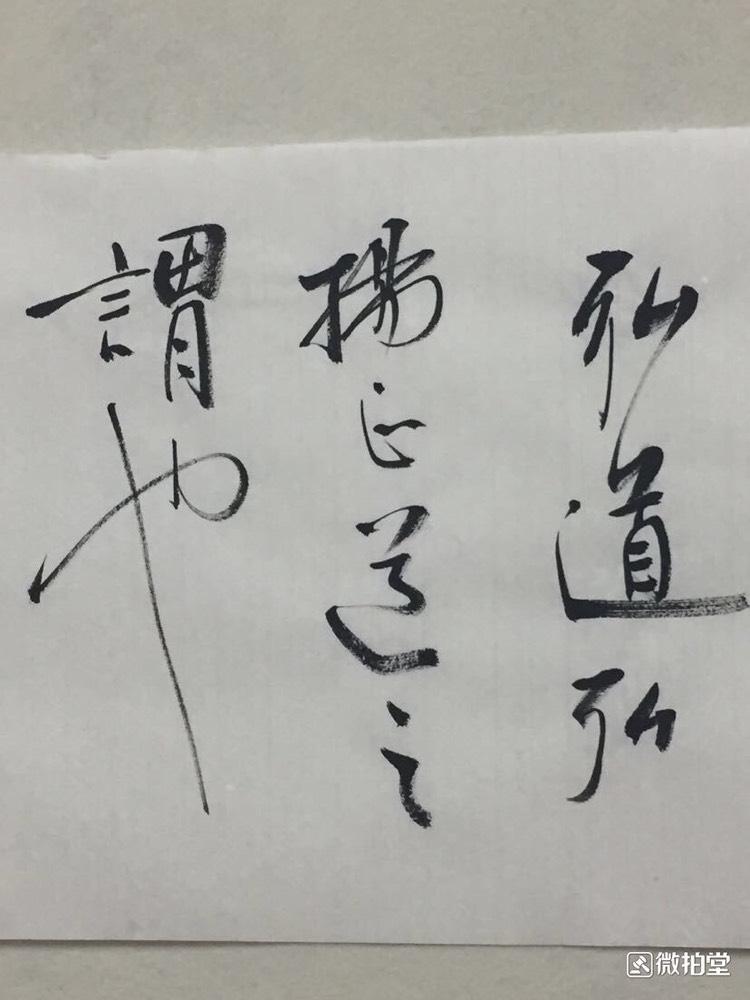 弘道弘
揚正道之
謂也
微拍堂